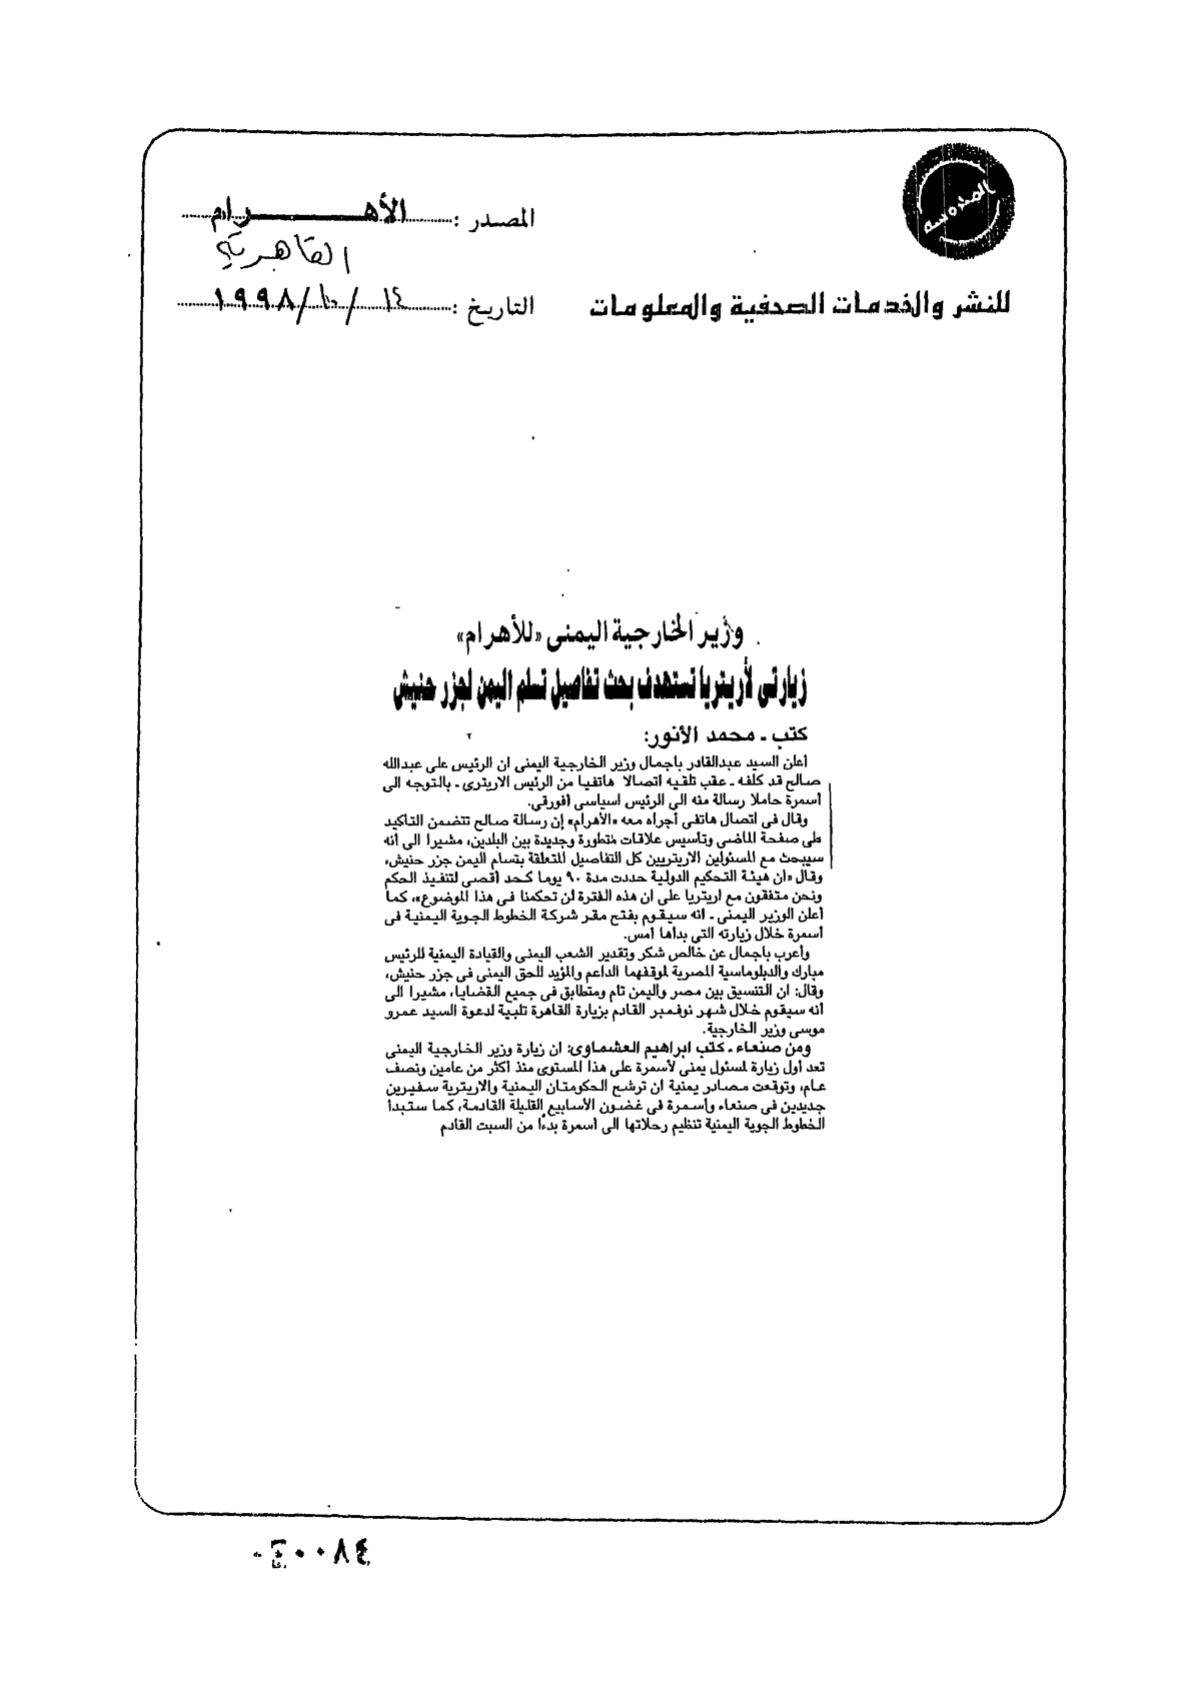 المدوسة
المصدر : الأهرام
القاهرية
للنشر والخدمات الصحفية والمعلومات
التاريخ : ١٤ / ١٠ / ١٩٩٨
وزير الخارجية اليمنى «للأهرام»
زيارتى لأريتريا تستهدف بحث تفاصيل تسلم اليمن لجزر حنيش
كتب ـ محمد الأنور:
أعلن السيد عبدالقادر باجمال وزير الخارجية اليمنى ان الرئيس على عبدالله
صالح قد كلفه ـ عقب تلقيه اتصالا هاتفيا من الرئيس الاريترى ـ بالتوجه الى
أسمرة حاملا رسالة منه الى الرئيس اسياسى أفورقى.
وقال فى اتصال هاتفى أجراه معه «الأهرام» إن رسالة صالح تتضمن التأكيد
على صفحة الماضى وتأسيس علاقات متطورة وجديدة بين البلدين، مشيرا الى أنه
سيبحث مع المسئولين الاريتريين كل التفاصيل المتعلقة بتسلم اليمن جزر حنيش،
وقال «ان هيئة التحكيم الدولية حددت مدة ٩٠ يوما كحد أقصى لتنفيذ الحكم
ونحن متفقون مع اريتريا على ان هذه الفترة لن تحكمنا فى هذا الموضوع»، كما
أعلن الوزير اليمنى ـ انه سيقوم بفتح مقر شركة الخطوط الجوية اليمنية فى
أسمرة خلال زيارته التى بدأها أمس.
وأعرب باجمال عن خالص شكر وتقدير الشعب اليمنى والقيادة اليمنية للرئيس
مبارك والدبلوماسية المصرية لموقفهما الداعم والمؤيد للحق اليمنى فى جزر حنيش،
وقال: ان التنسيق بين مصر واليمن تام ومتطابق فى جميع القضايا، مشيرا الى
أنه سيقوم خلال شهر نوفمبر القادم بزيارة القاهرة تلبية لدعوة السيد عمرو
موسى وزير الخارجية.
ومن صنعاء ـ كتب ابراهيم العشماوى: ان زيارة وزير الخارجية اليمنى
تعد أول زيارة لمسئول يمنى لأسمرة على هذا المستوى منذ اكثر من عامين ونصف
عام، وتوقعت مصادر يمنية ان ترشح الحكومتان اليمنية والاريترية سفيرين
جديدين فى صنعاء وأسمرة فى غضون الأسابيع القليلة القادمة، كما ستبدأ
الخطوط الجوية اليمنية تنظيم رحلاتها الى أسمرة بدءًا من السبت القادم